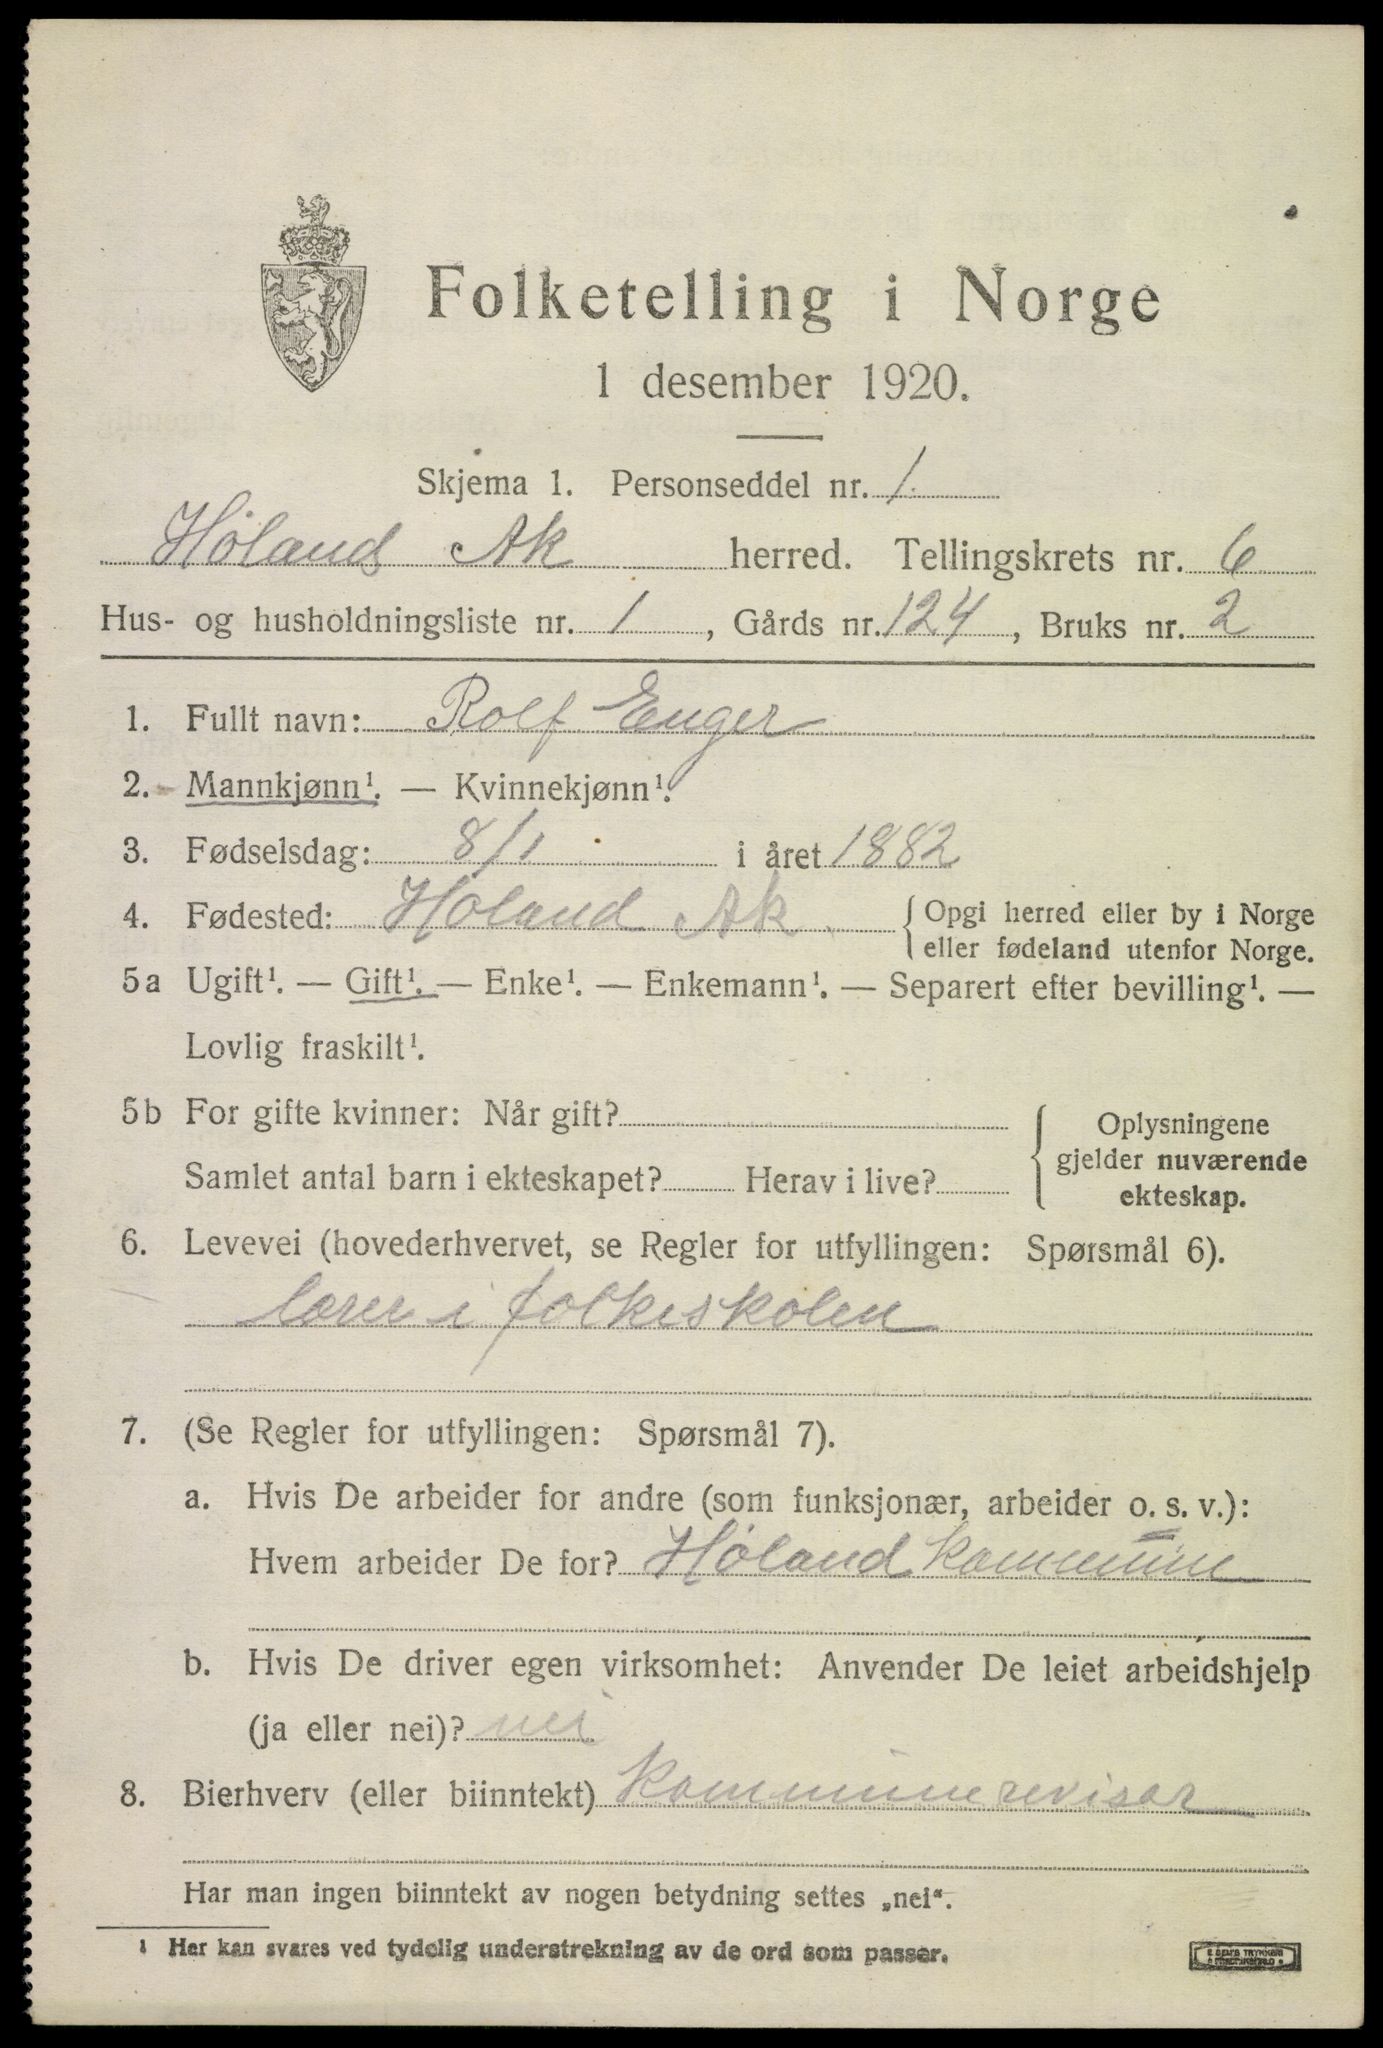 Folketelling i Norge
1 desember 1920.
Skjema 1. Personseddel nr. 1.
Høland Ak herred. Tellingskrets nr. 6
Hus- og husholdningsliste nr. 1, Gårds nr. 124, Bruks nr. 2
1. Fullt navn: Rolf Enger
2. Mannkjønn¹. — Kvinnekjønn¹.
3. Fødselsdag: 8/1 i året 1882
4. Fødested: Høland Ak. { Opgi herred eller by i Norge
eller fødeland utenfor Norge.
5a Ugift¹. — Gift¹. — Enke¹. — Enkemann¹. — Separert efter bevilling¹. —
Lovlig fraskilt¹.
5b For gifte kvinner: Når gift?
Samlet antal barn i ekteskapet? Herav i live?
Oplysningene
gjelder nuværende
ekteskap.
6. Levevei (hovederhvervet, se Regler for utfyllingen: Spørsmål 6).
lærer i folkeskolen
7. (Se Regler for utfyllingen: Spørsmål 7).
a. Hvis De arbeider for andre (som funksjonær, arbeider o. s. v.):
Hvem arbeider De for? Høland kommune
b. Hvis De driver egen virksomhet: Anvender De leiet arbeidshjelp
(ja eller nei)? nei
8. Bierhverv (eller biinntekt) Kommunerevisor
Har man ingen biinntekt av nogen betydning settes „nei“.
¹ Her kan svares ved tydelig understrekning av de ord som passer.